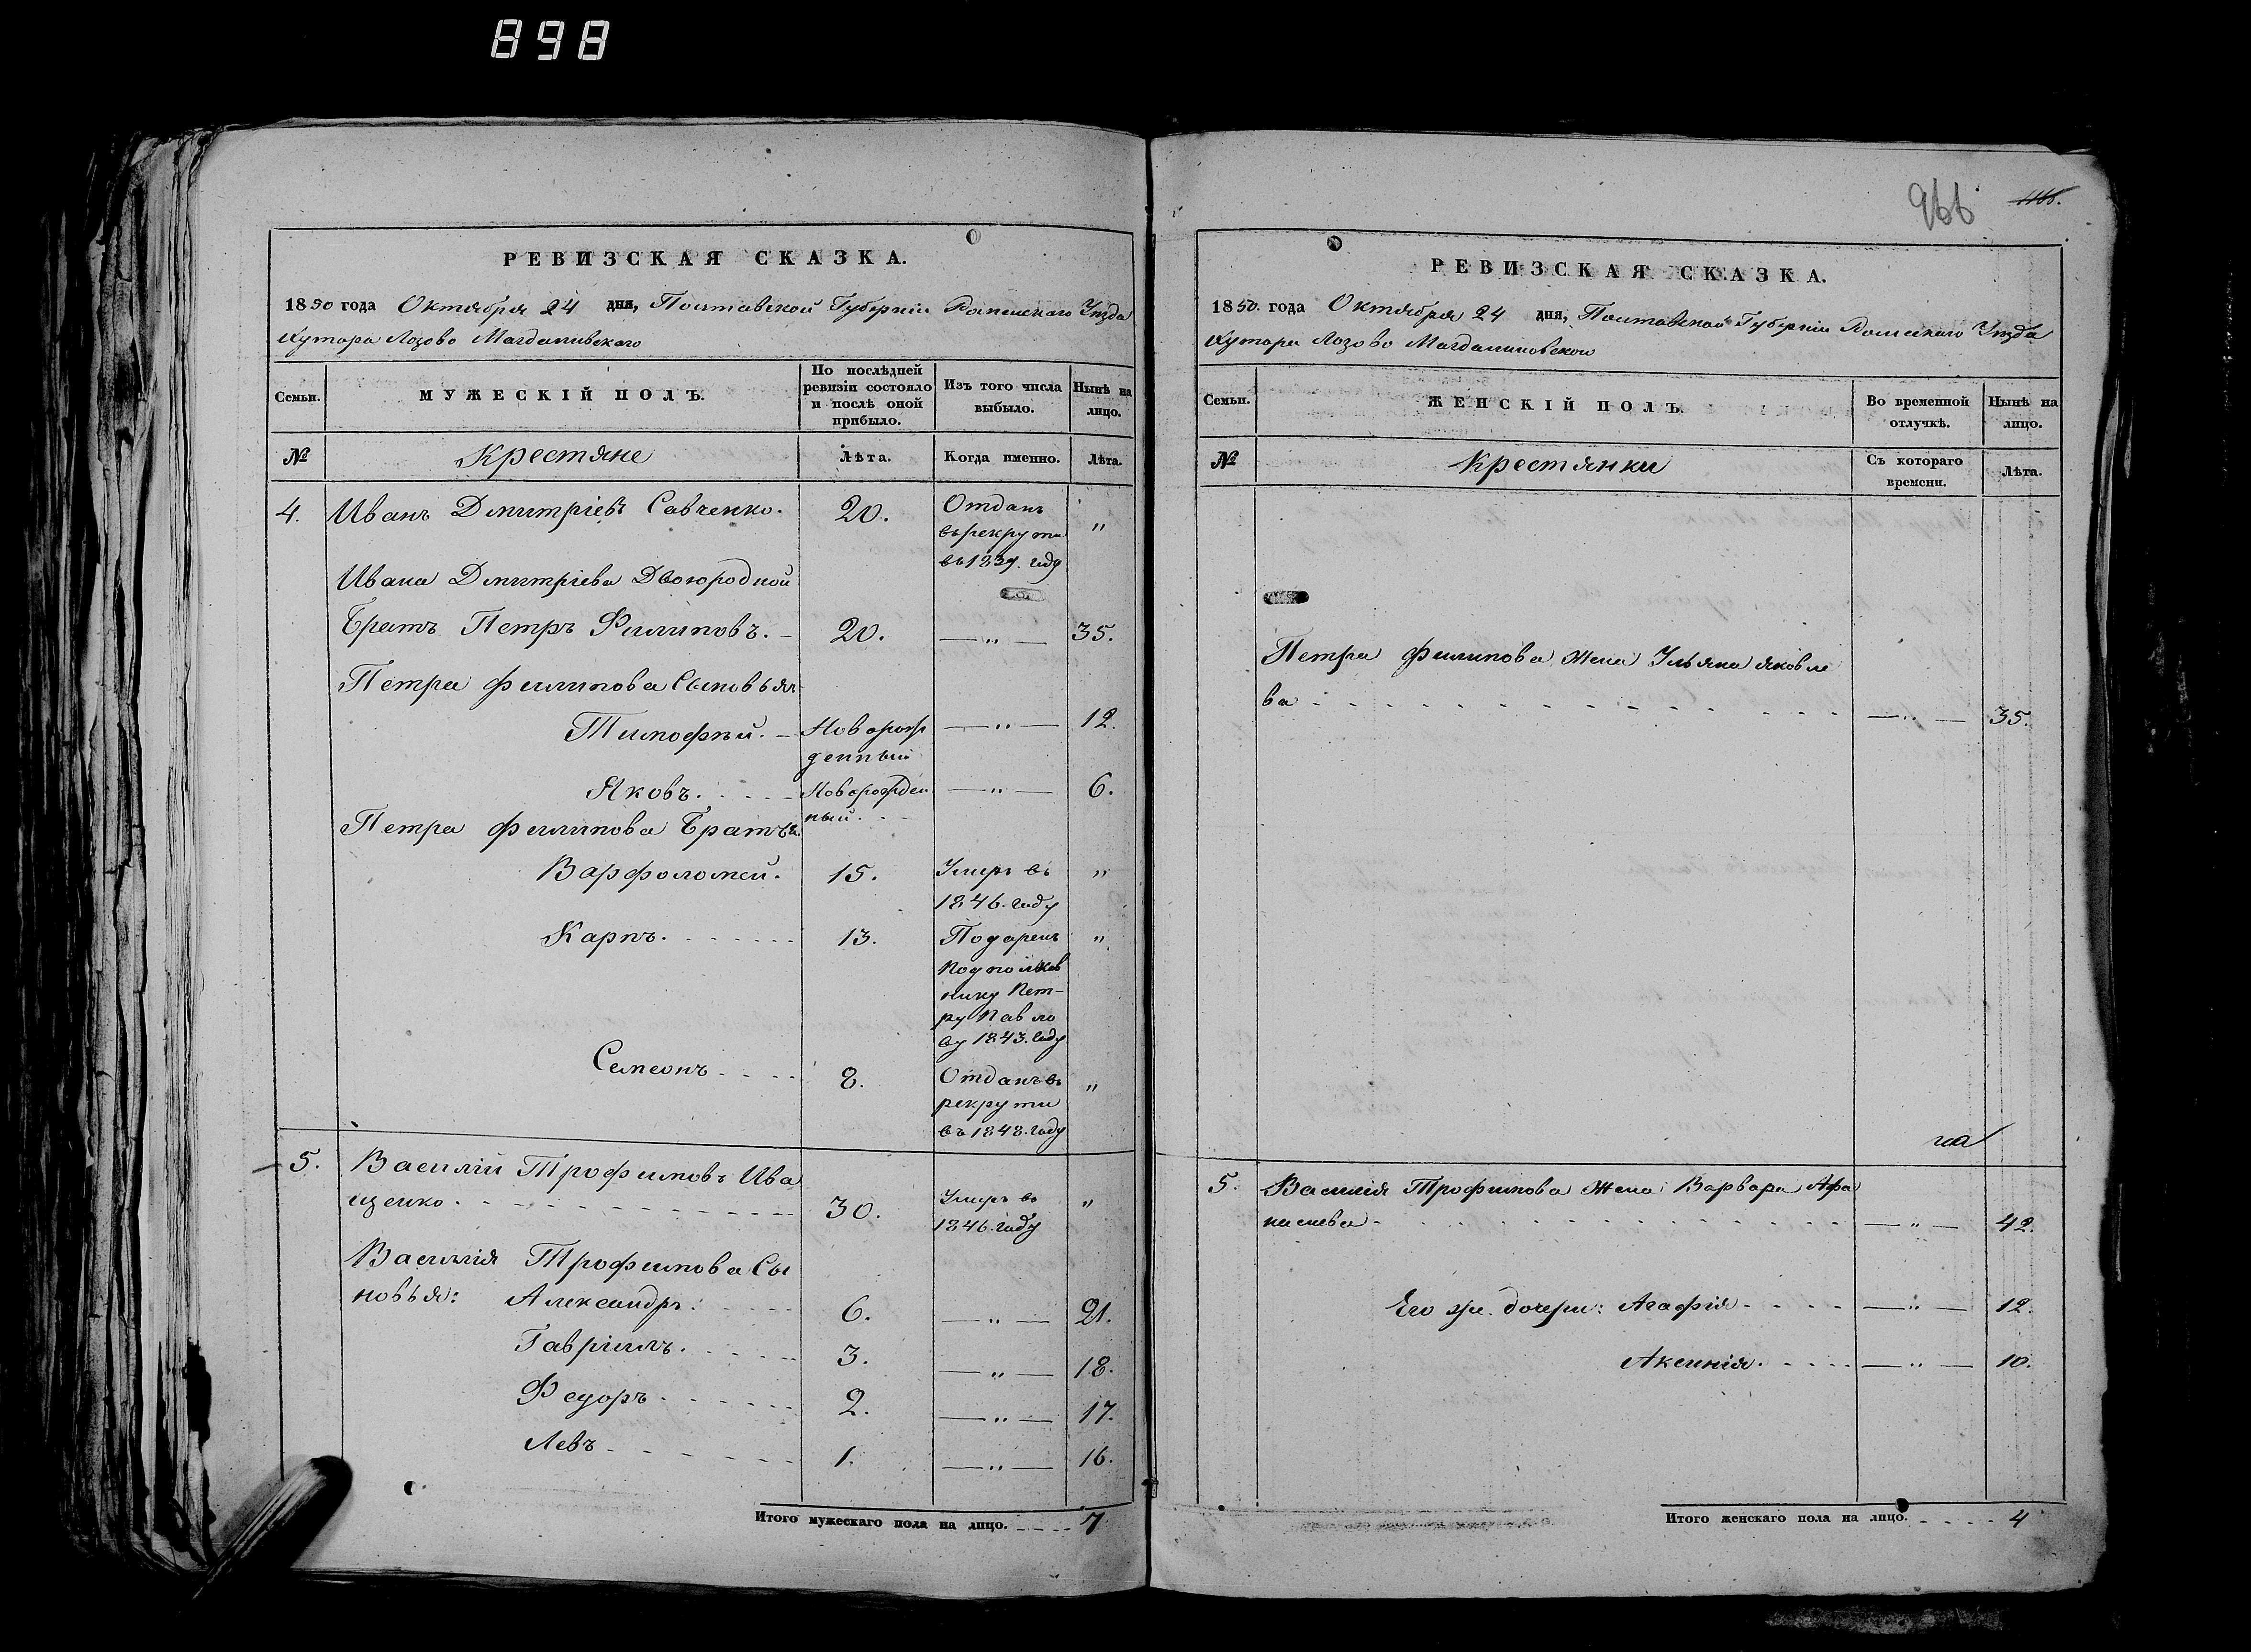 898
РЕВИЗСКАЯ СКАЗКА.
1850 года Октября 24 дня, Полтавской Губернии Роменскаго Уезда
Хутора Лозово Магдалинвскаго
Семьи.
МУЖЕСКІЙ ПОЛЪ.
По послѣдней ревизіи состояло и послѣ оной прибыло.
Изъ того числа выбыло.
Нынѣ на лицо.
№
Крестяне
Лѣта.
Когда именно.
Лѣта.
4. Иванъ Дмитріевъ Савченко. 20. Отданъ "
въ рекруты
въ 1839. году
Ивана Дмитріева Двоюродной
Братъ Петръ Филиповъ. 20. — " — 35.
Петра Филипова Сыновья
Тимофѣй. Поворож — " — 12.
денный
Яковъ. Новорожден — " — 6.
ный.
Петра Филипова Братья
Варфоломей. 15. Умеръ въ "
1846. году
Карпъ. 13. Подаренъ "
Подполков
нику Пет-
ру Павло
ву 1843. году
Семеонъ 8. Отданъ въ "
рекруты
въ 1848. году
5. Василій Трофимовъ Ива
щенко. 30. Умеръ въ "
1846. году
Василія Трофимова Сы
новья: Александръ. 6. — " — 21.
Гавріилъ. 3. — " — 18.
Федоръ 2. — " — 17.
Левъ 1. — " — 16.
Итого мужескаго пола на лицо. 7
966 1166.
РЕВИЗСКАЯ СКАЗКА.
1850. года Октября 24 дня, Полтавской Губерніи Роменскаго Уезда
Хутора Лозово Магдалиновскаго
Семьи.
ЖЕНСКІЙ ПОЛЪ.
Во временной отлучкѣ.
Нынѣ на лицо.
№
Крестянки
Съ котораго времени.
Лѣта.
Петра Филипова Жена Ульяна Яковле
ва — " — 35.
на
5. Василія Трофимова Жена Варвара Афа
насиева — " — 42.
Его же. дочери: Агафія — " — 12.
Аксинія. — " — 10.
Итого женскаго пола на лицо. 4